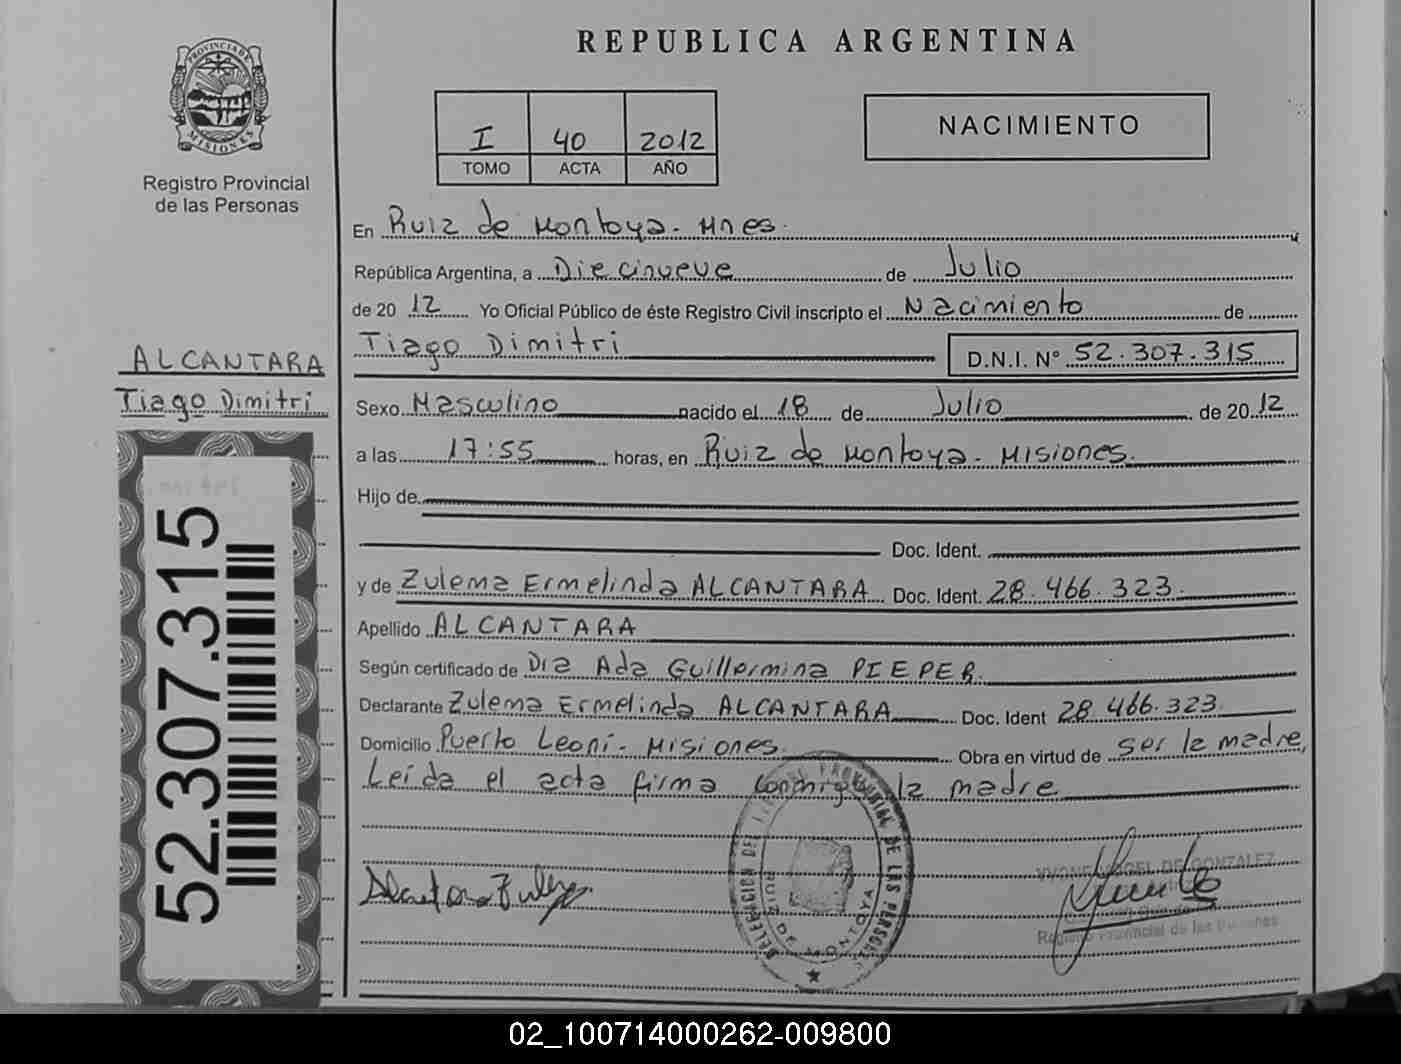 PROVINCIA DE MISIONES
Registro Provincial
de las Personas
REPUBLICA ARGENTINA
I 40 2012
TOMO ACTA AÑO
NACIMIENTO
En Ruiz de Montoya - Mnes.
República Argentina, a Diecinueve de Julio
de 20 12 Yo Oficial Público de éste Registro Civil inscripto el Nacimiento de
Tiago Dimitri D.N.I. N° 52.307.315
ALCANTARA
Tiago Dimitri
Sexo Masculino nacido el 18 de Julio de 20 12
a las 17:55 horas, en Ruiz de Montoya - Misiones.
Hijo de
Doc. Ident.
y de Zulema Ermelinda ALCANTARA Doc. Ident. 28.466.323.
Apellido ALCANTARA
Según certificado de Dra Ada Guillermina PIEPER.
Declarante Zulema Ermelinda ALCANTARA Doc. Ident 28.466.323.
Domicilio Puerto Leoni - Misiones. Obra en virtud de ser la madre,
Leída el acta firma conmigo la madre
52.307.315
DELEGACION DEL REGISTRO PROVINCIAL DE LAS PERSONAS
RUIZ DE MONTOYA
Alcantara Zulema
YVONE VOGEL DE GONZALEZ
Registro Provincial de las Personas
02_100714000262-009800